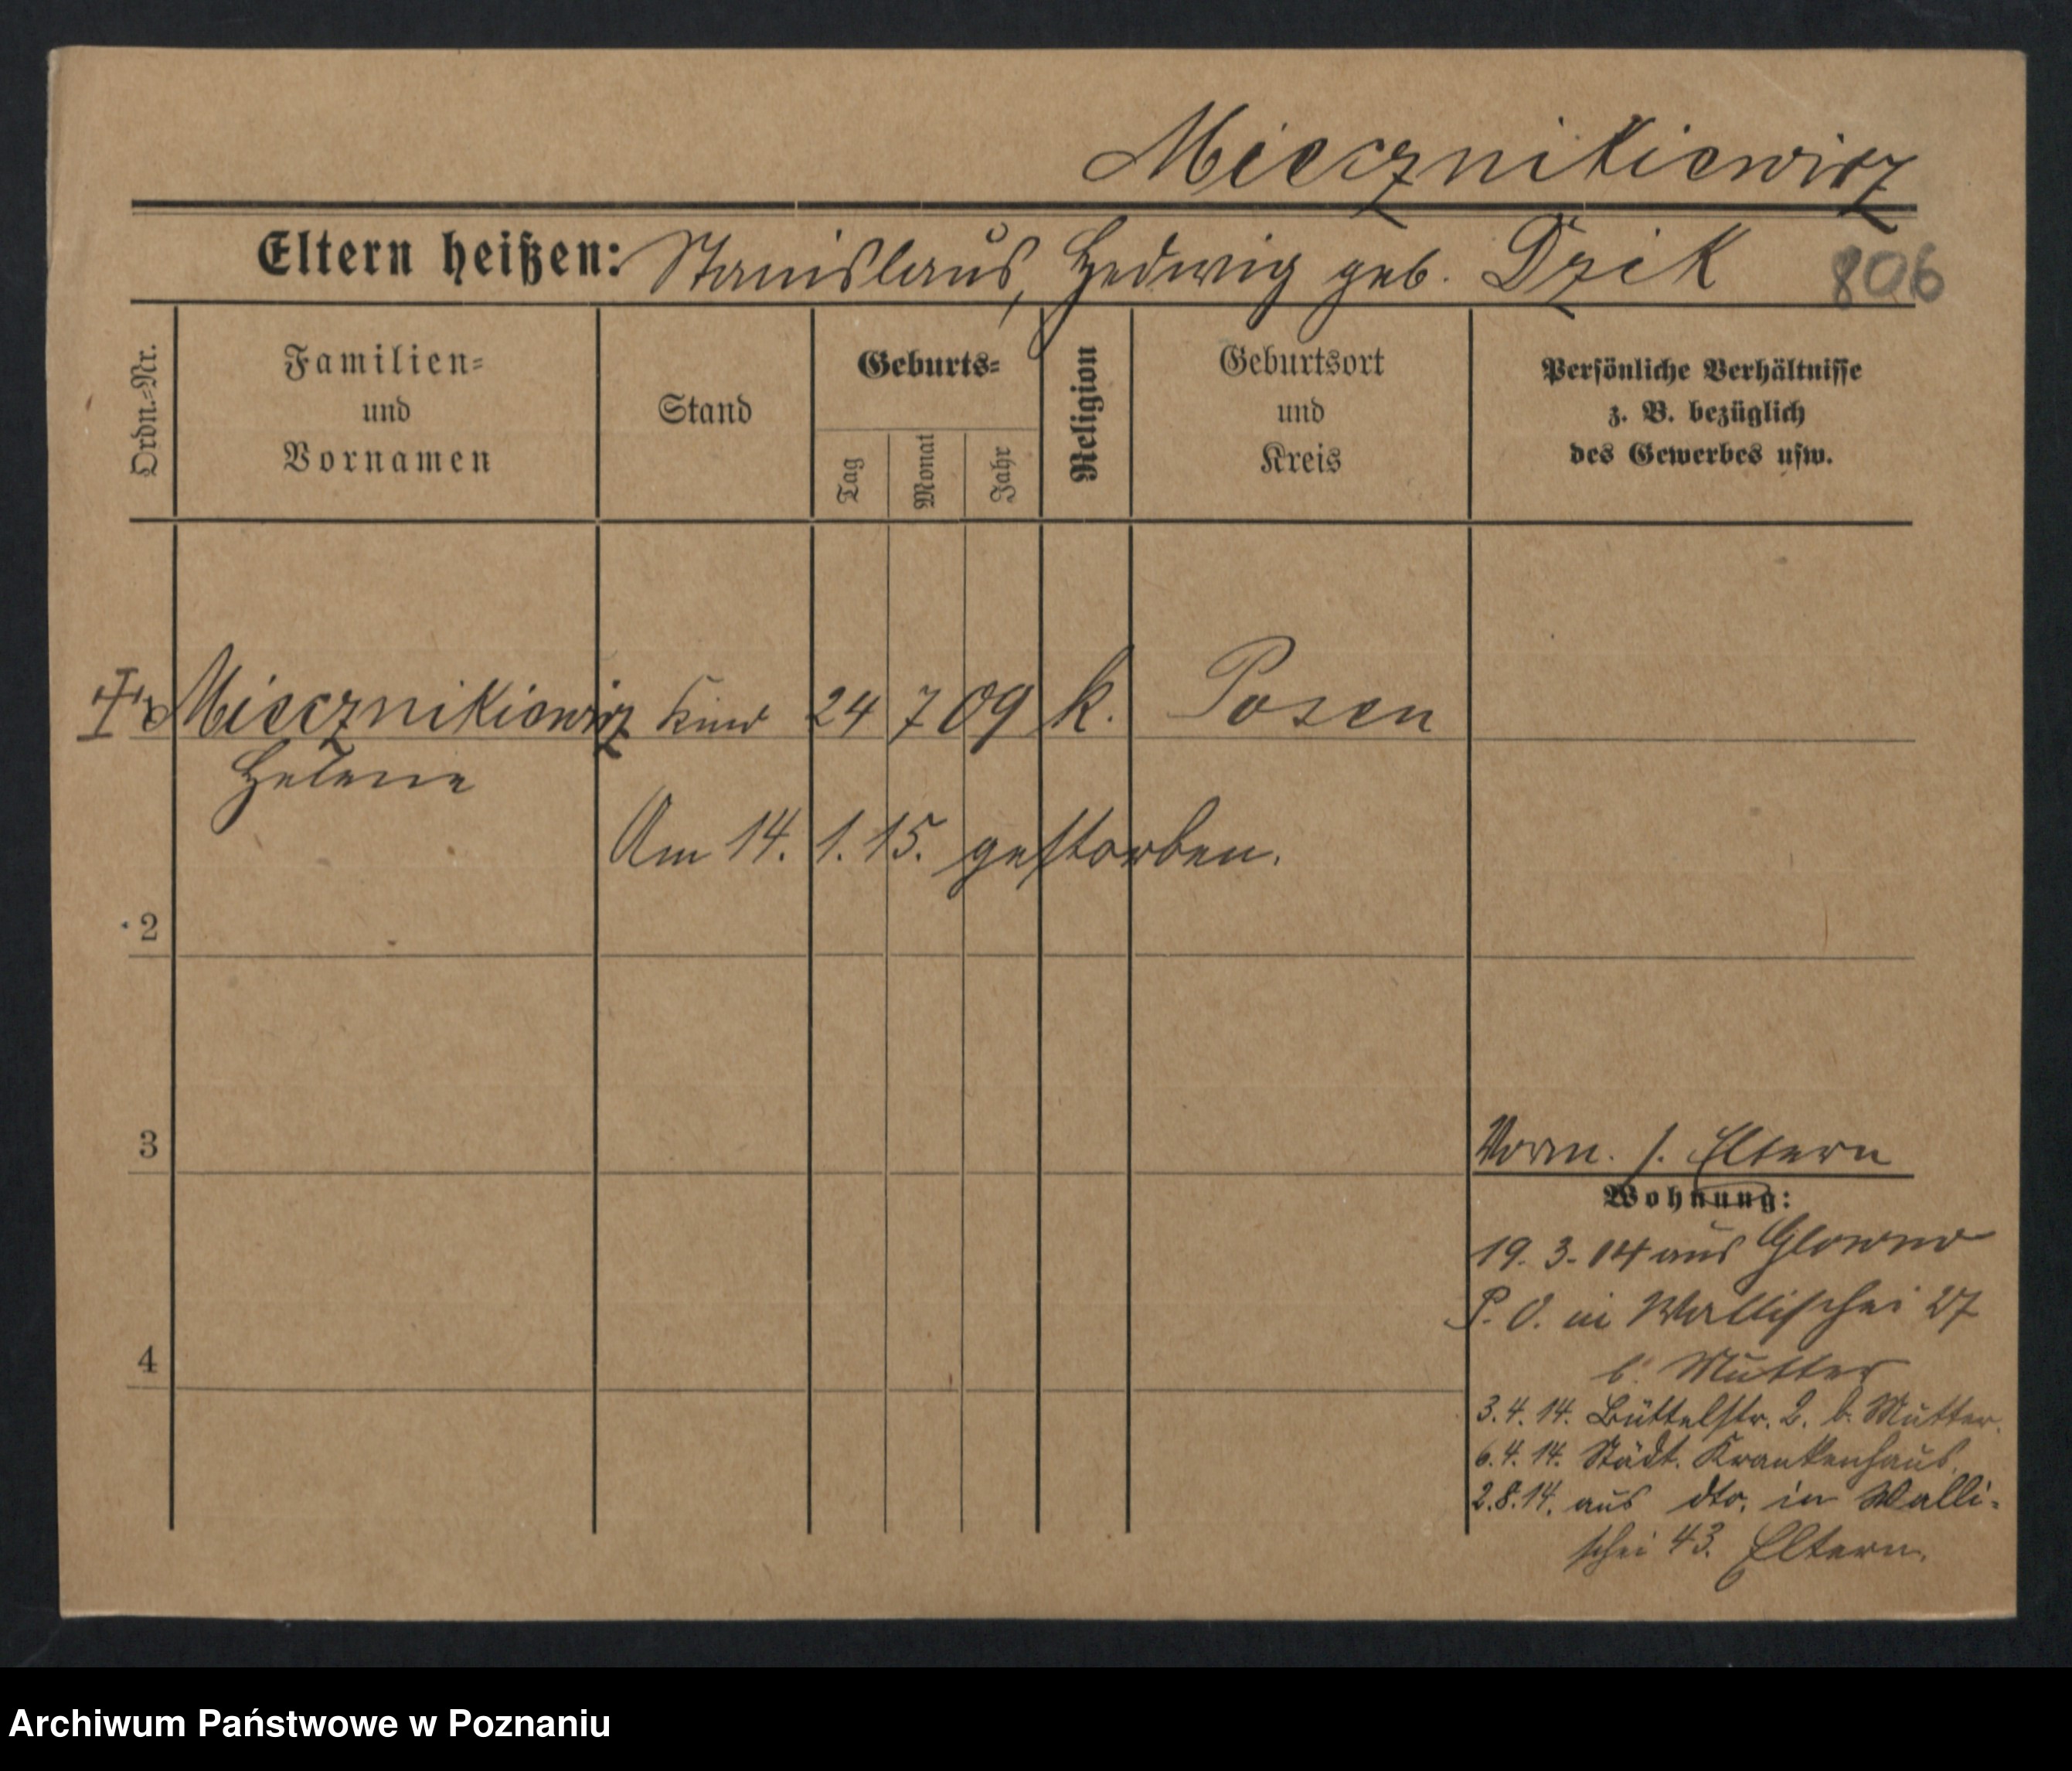 Miecznikiewicz
Eltern heißen: Stanislaus, Hedwig geb. Dzik 806
Ordn.-Nr.
Familien-
und
Vornamen
Stand
Geburts-
Tag
Monat
Jahr
Religion
Geburtsort
und
Kreis
Persönliche Verhältnisse
z. B. bezüglich
des Gewerbes usw.
Miecznikiewicz Kind 24 7 09 k. Posen
Helene
Am 14. 1. 15. gestorben.
2
3
Vorm. s. Eltern
Wohnung:
19. 3. 14 aus Glowno
P. O. in Wallischei 27
4
b. Mutter
3.4.14. Büttelstr. 2. b. Mutter.
6.4.14. Städt. Krankenhaus.
2.8.14. aus dto. in Walli-
schei 43. Eltern.
Archiwum Państwowe w Poznaniu